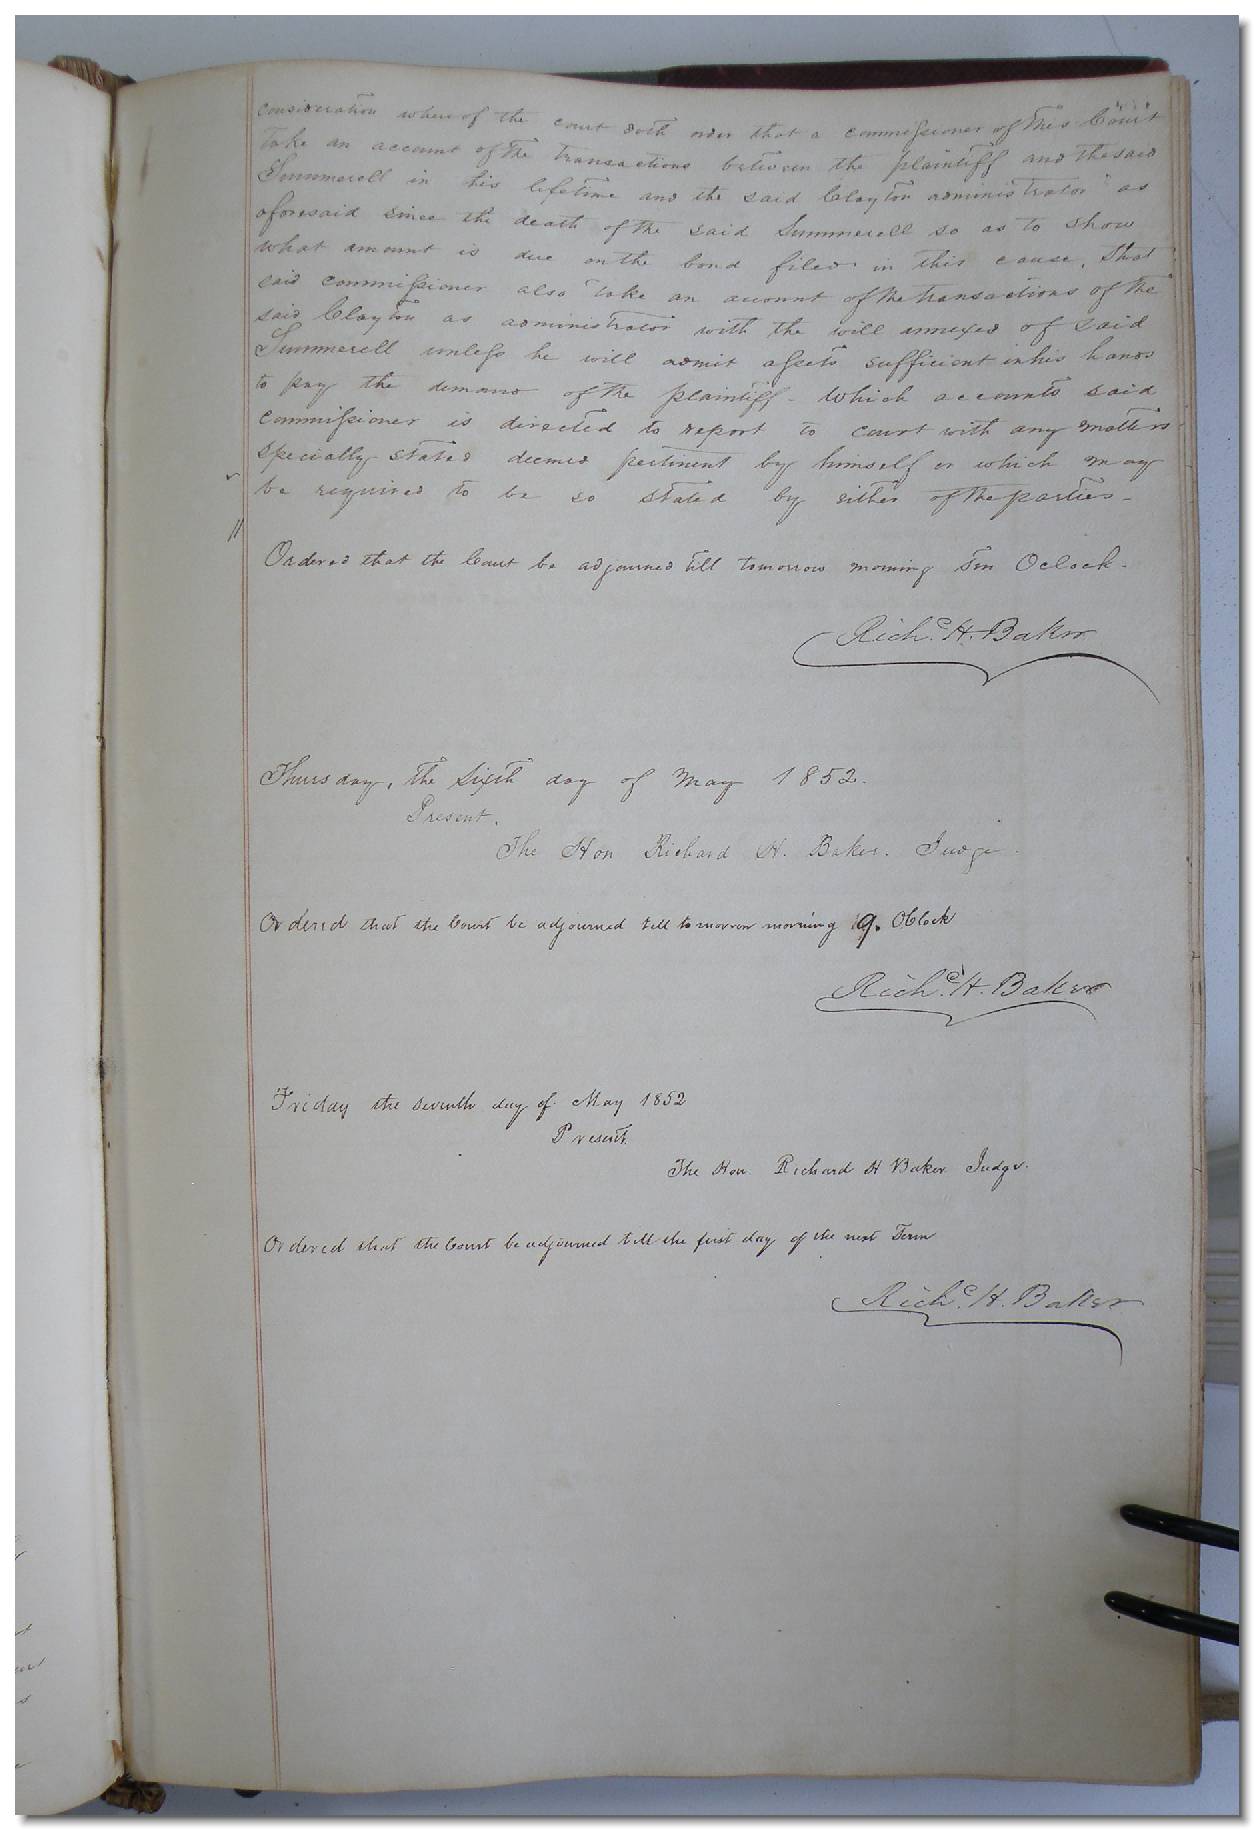 consideration where of the court doth order that a commissioner of this Court
take an account of the transactions between the plaintiff and the said
Summerell in his lifetime and the said Clayton administrator as
aforesaid since the death of the said Summerell so as to show
what amount is due on the bond filed in this cause, that
said commissioner also take an account of the transactions of the
said Clayton as administrator with the will annexed of said
Summerell unless he will admit assets sufficient in his hands
to pay the demand of the plaintiff - Which accounts said
commissioner is directed to report to court with any matters
specially stated deemed pertinent by himself or which may
be required to be so stated by either of the parties -
Ordered that the Court be adjourned till tomorrow morning Ten Oclock -
Richd. H. Baker
Thursday, the sixth day of May 1852.
Present.
The Hon Richard H. Baker. Judge
Ordered that the Court be adjourned till tomorrow morning 9. OClock
Richd. H. Baker
Friday the seventh day of May 1852
Present
The Hon. Richard H Baker Judge.
Ordered that the Court be adjourned till the first day of the next Term
Richd. H. Baker